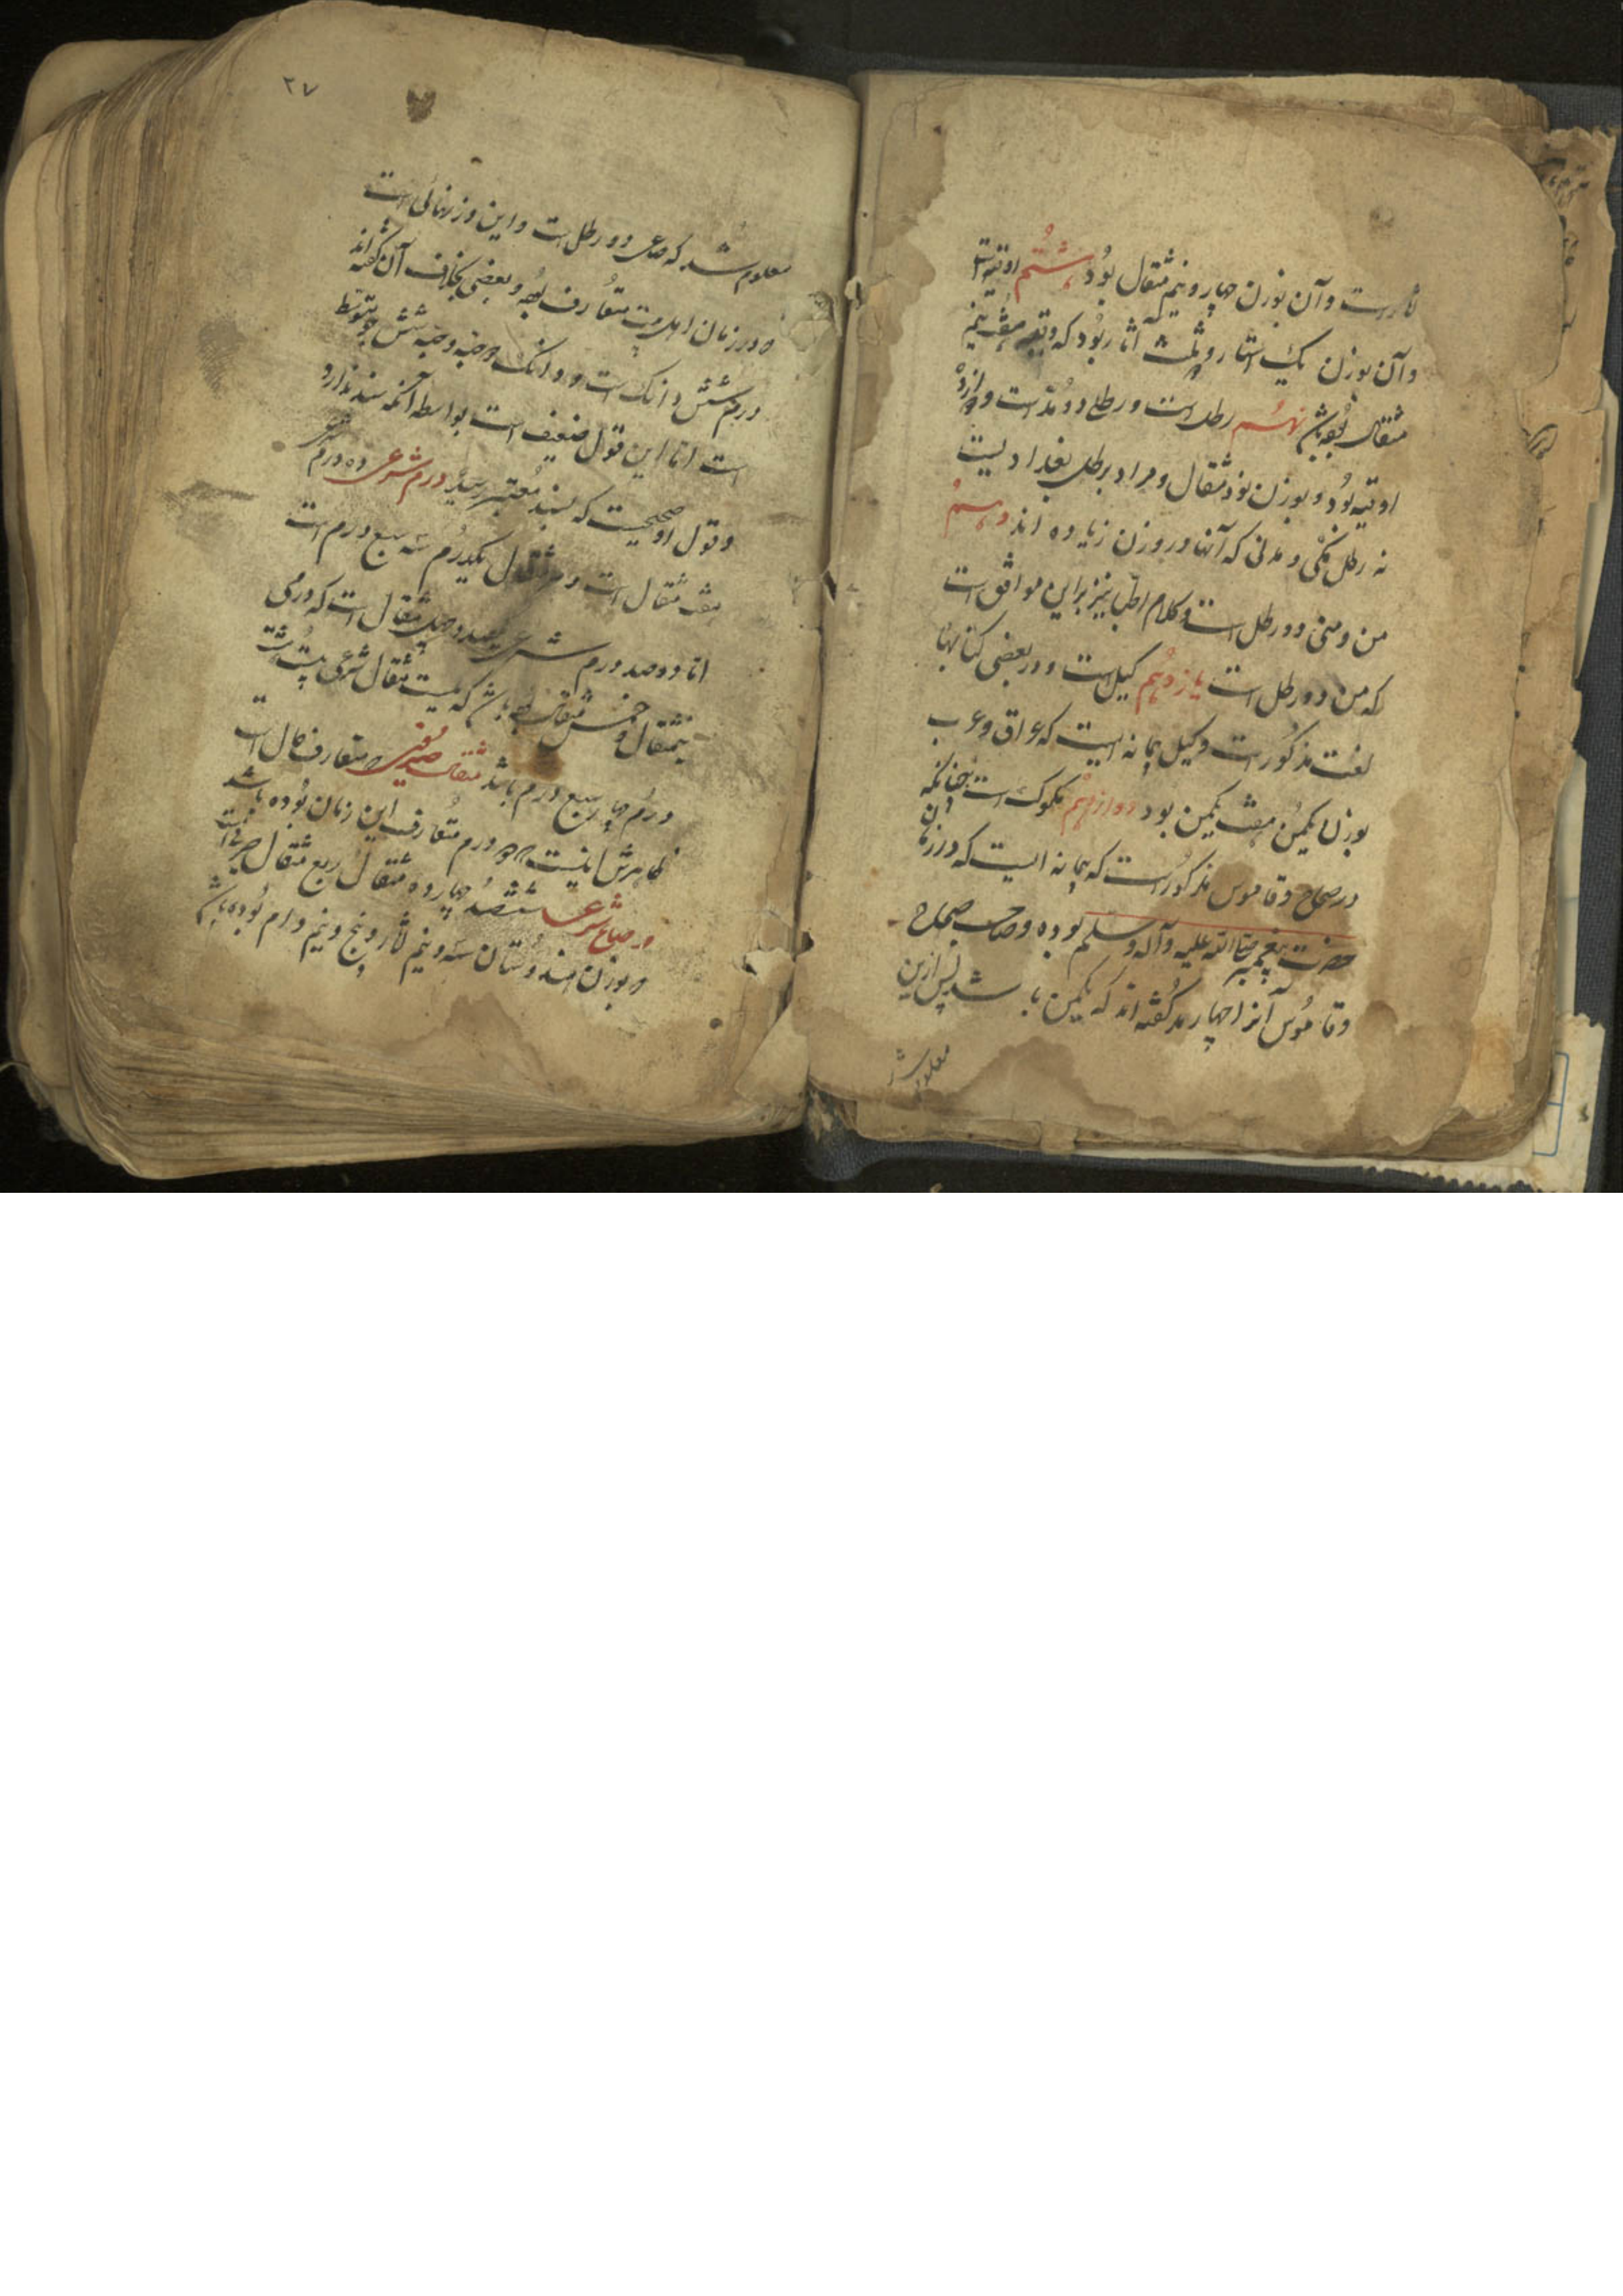 ثار است و آن بوزن چهار و نیم مثقال بود هشتم اوقیه است
و آن بوزن یک استار و ثلث استار بود که بوقیه هفت نیم
مثقال بوده باشد نهم رطل است و رطل دو مد است و دوازده
اوقیه بود و بوزن نود مثقال و مراد برطل بغداد یست
نه رطل مکی و مدنی که آنها در وزن زیاده اند دهم
من و منی دو رطل است و کلام اطبا نیز براین موافق است
که من دو رطل است یازدهم کیل است و در بعضی کتابها
لغت مذکور است و کیل پیمانه ایست که عراق و عرب
بوزن یکمن هفت یکمن بود دوازدهم مکوک است چنانکه
در صحاح و قاموس مذکور است که پیمانه ایست که در زمان
حضرت پیغمبر صلی الله علیه و آله و سلم بوده و صاحب صحاح
و قاموس آنرا چهار مد گفته اند که یکمن باشد پس ازین
معلوم شد
۲۷
معلوم شد که صاع دو رطل است و این وزنهائی است
که در زمان اهل بیت متعارف بوده و بعضی بخلاف آن گفته اند
درم شش دانگ است و دانگ دو حبه و حبه شش جو متوسط
است اما این قول ضعیف است بواسطه آنکه سند ندارد
و قول او صحیحیست که بسند معتبر رسید درم شرعی ده درم شرعی
هفت مثقال است و هر مثقال یکدرم سه سبع درم است
اما دو صد درم شرعی یکصد و چهل مثقال است که درمی
نیمثقال و خمس مثقال بوده باشد که بیست مثقال شرعی بیست و هشت
درم چهار سبع درم باشد مثقال صیرفی که متعارف حال است
ظاهرش اینست که درم متعارف این زمان بوده باشد
و صاع شرعی ششصد و چهارده مثقال ربع مثقال صیرفی است
و بوزن هندوستان سه و نیم ثار و پنج و نیم دام بوده باشد